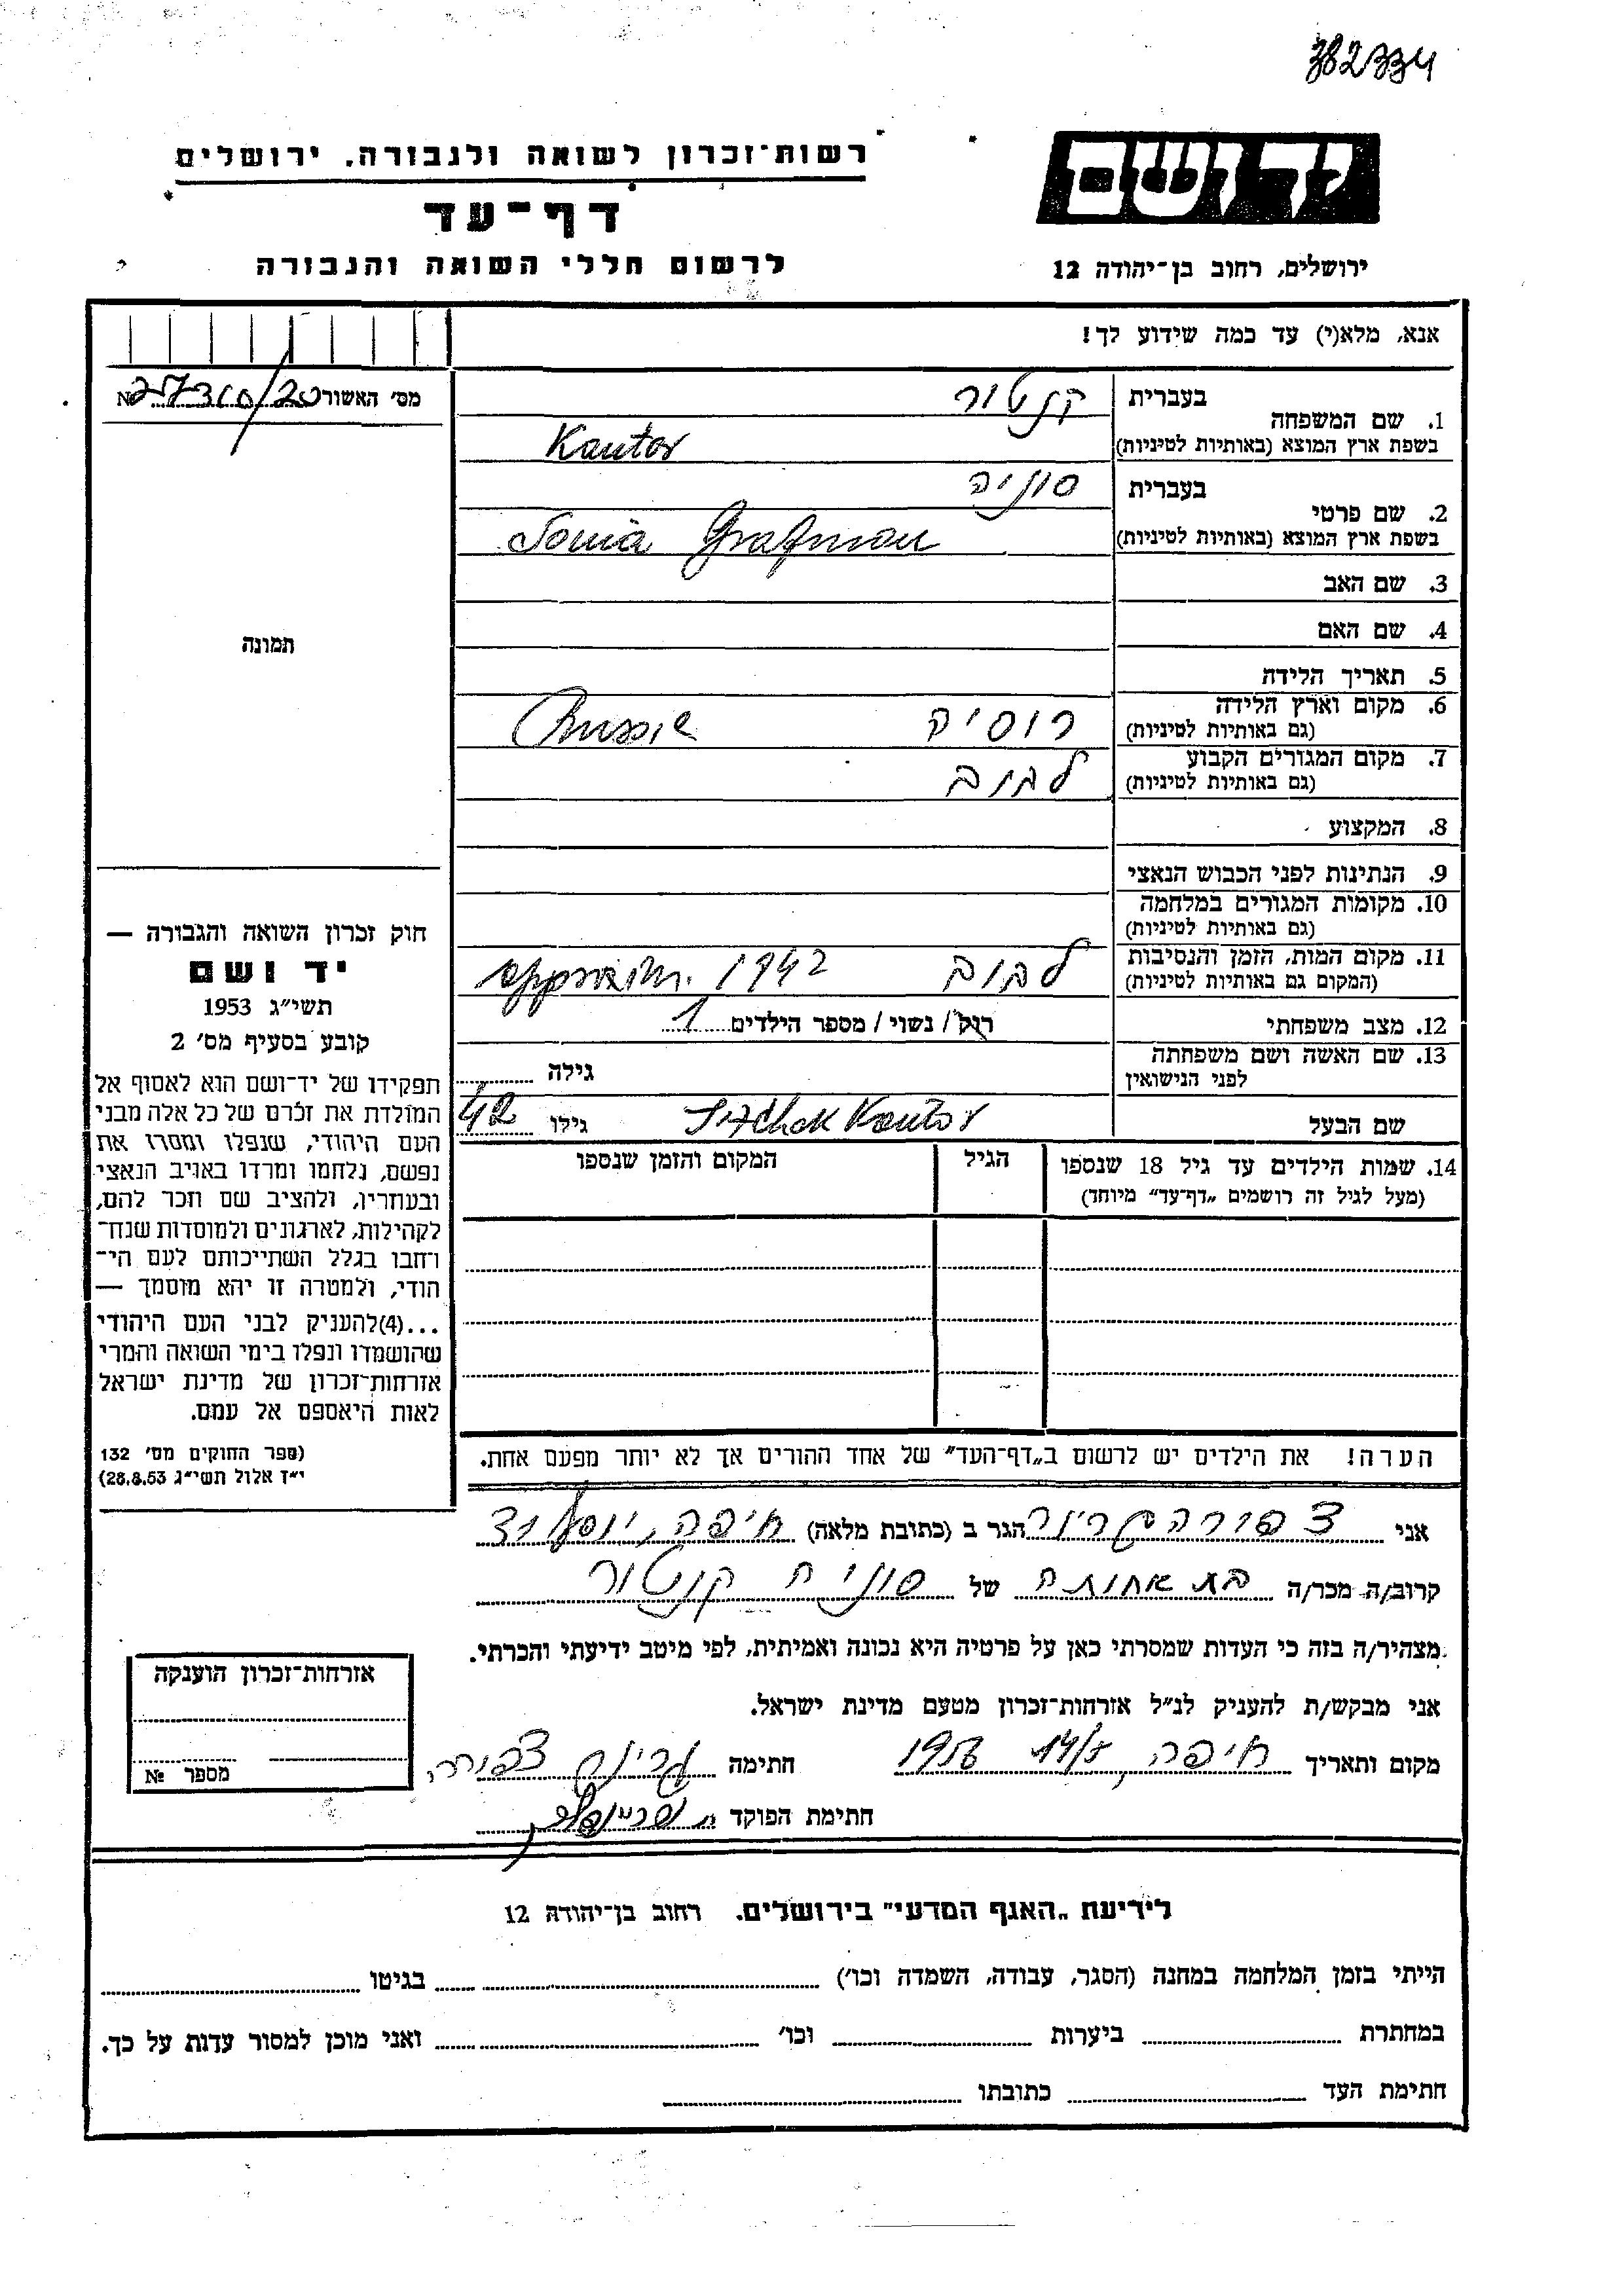 382334
יד ושם
רשות־זכרון לשואה ולגבורה, ירושלים
דף־עד
לרשום חללי השואה והגבורה
ירושלים, רחוב בן־יהודה 12
אנא, מלא(י) עד כמה שידוע לך!
מס׳ האשור 27310/20 №
1. שם המשפחה
בעברית קנטור
בשפת ארץ המוצא (באותיות לטיניות) Kantor
2. שם פרטי
בעברית סוניה
בשפת ארץ המוצא (באותיות לטיניות) Sonia Grafman
3. שם האב
4. שם האם
5. תאריך הלידה
6. מקום וארץ הלידה
(גם באותיות לטיניות) רוסיה Russie
7. מקום המגורים הקבוע
(גם באותיות לטיניות) לבוב
8. המקצוע
9. הנתינות לפני הכבוש הנאצי
10. מקומות המגורים במלחמה
(גם באותיות לטיניות)
11. מקום המות, הזמן והנסיבות
(המקום גם באותיות לטיניות) לבוב 1942
12. מצב משפחתי רוק/ נשוי/ מספר הילדים 1
13. שם האשה ושם משפחתה
לפני הנישואין גילה
שם הבעל Kantor גילו 42
14. שמות הילדים עד גיל 18 שנספו
(מעל לגיל זה רושמים „דף־עד״ מיוחד)
הגיל
המקום והזמן שנספו
תמונה
חוק זכרון השואה והגבורה —
יד ושם
תשי״ג 1953
קובע בסעיף מס׳ 2
תפקידו של יד־ושם הוא לאסוף אל
המולדת את זכרם של כל אלה מבני
העם היהודי, שנפלו ומסרו את
נפשם, נלחמו ומרדו באויב הנאצי
ובעוזריו, ולהציב שם וזכר להם,
לקהילות, לארגונים ולמוסדות שנח־
רחבו בגלל השתייכותם לעם הי־
הודי, ולמטרה זו יהא מוסמך —
...(4)להעניק לבני העם היהודי
שהושמדו ונפלו בימי השואה והמרי
אזרחות־זכרון של מדינת ישראל
לאות היאספם אל עמם.
(ספר החוקים מס׳ 132
י״ז אלול תשי״ג 28.8.53)
הערה! את הילדים יש לרשום ב„דף־העד״ של אחד ההורים אך לא יותר מפעם אחת.
אני צפורה הגר ב (כתובת מלאה) חיפה,
קרוב/ה מכר/ה בת אחותה של סוניה קנטור
מצהיר/ה בזה כי העדות שמסרתי כאן על פרטיה היא נכונה ואמיתית, לפי מיטב ידיעתי והכרתי.
אני מבקש/ת להעניק לנ״ל אזרחות־זכרון מטעם מדינת ישראל.
מקום ותאריך חיפה, חתימה צפורה
חתימת הפוקד
אזרחות־זכרון הוענקה
מספר №
לידיעת „האגף המדעי״ בירושלים. רחוב בן־יהודה 12
הייתי בזמן המלחמה במחנה (הסגר, עבודה, השמדה וכו׳) בגיטו
במחתרת ביערות וכו׳ ואני מוכן למסור עדות על כך.
חתימת העד כתובתו